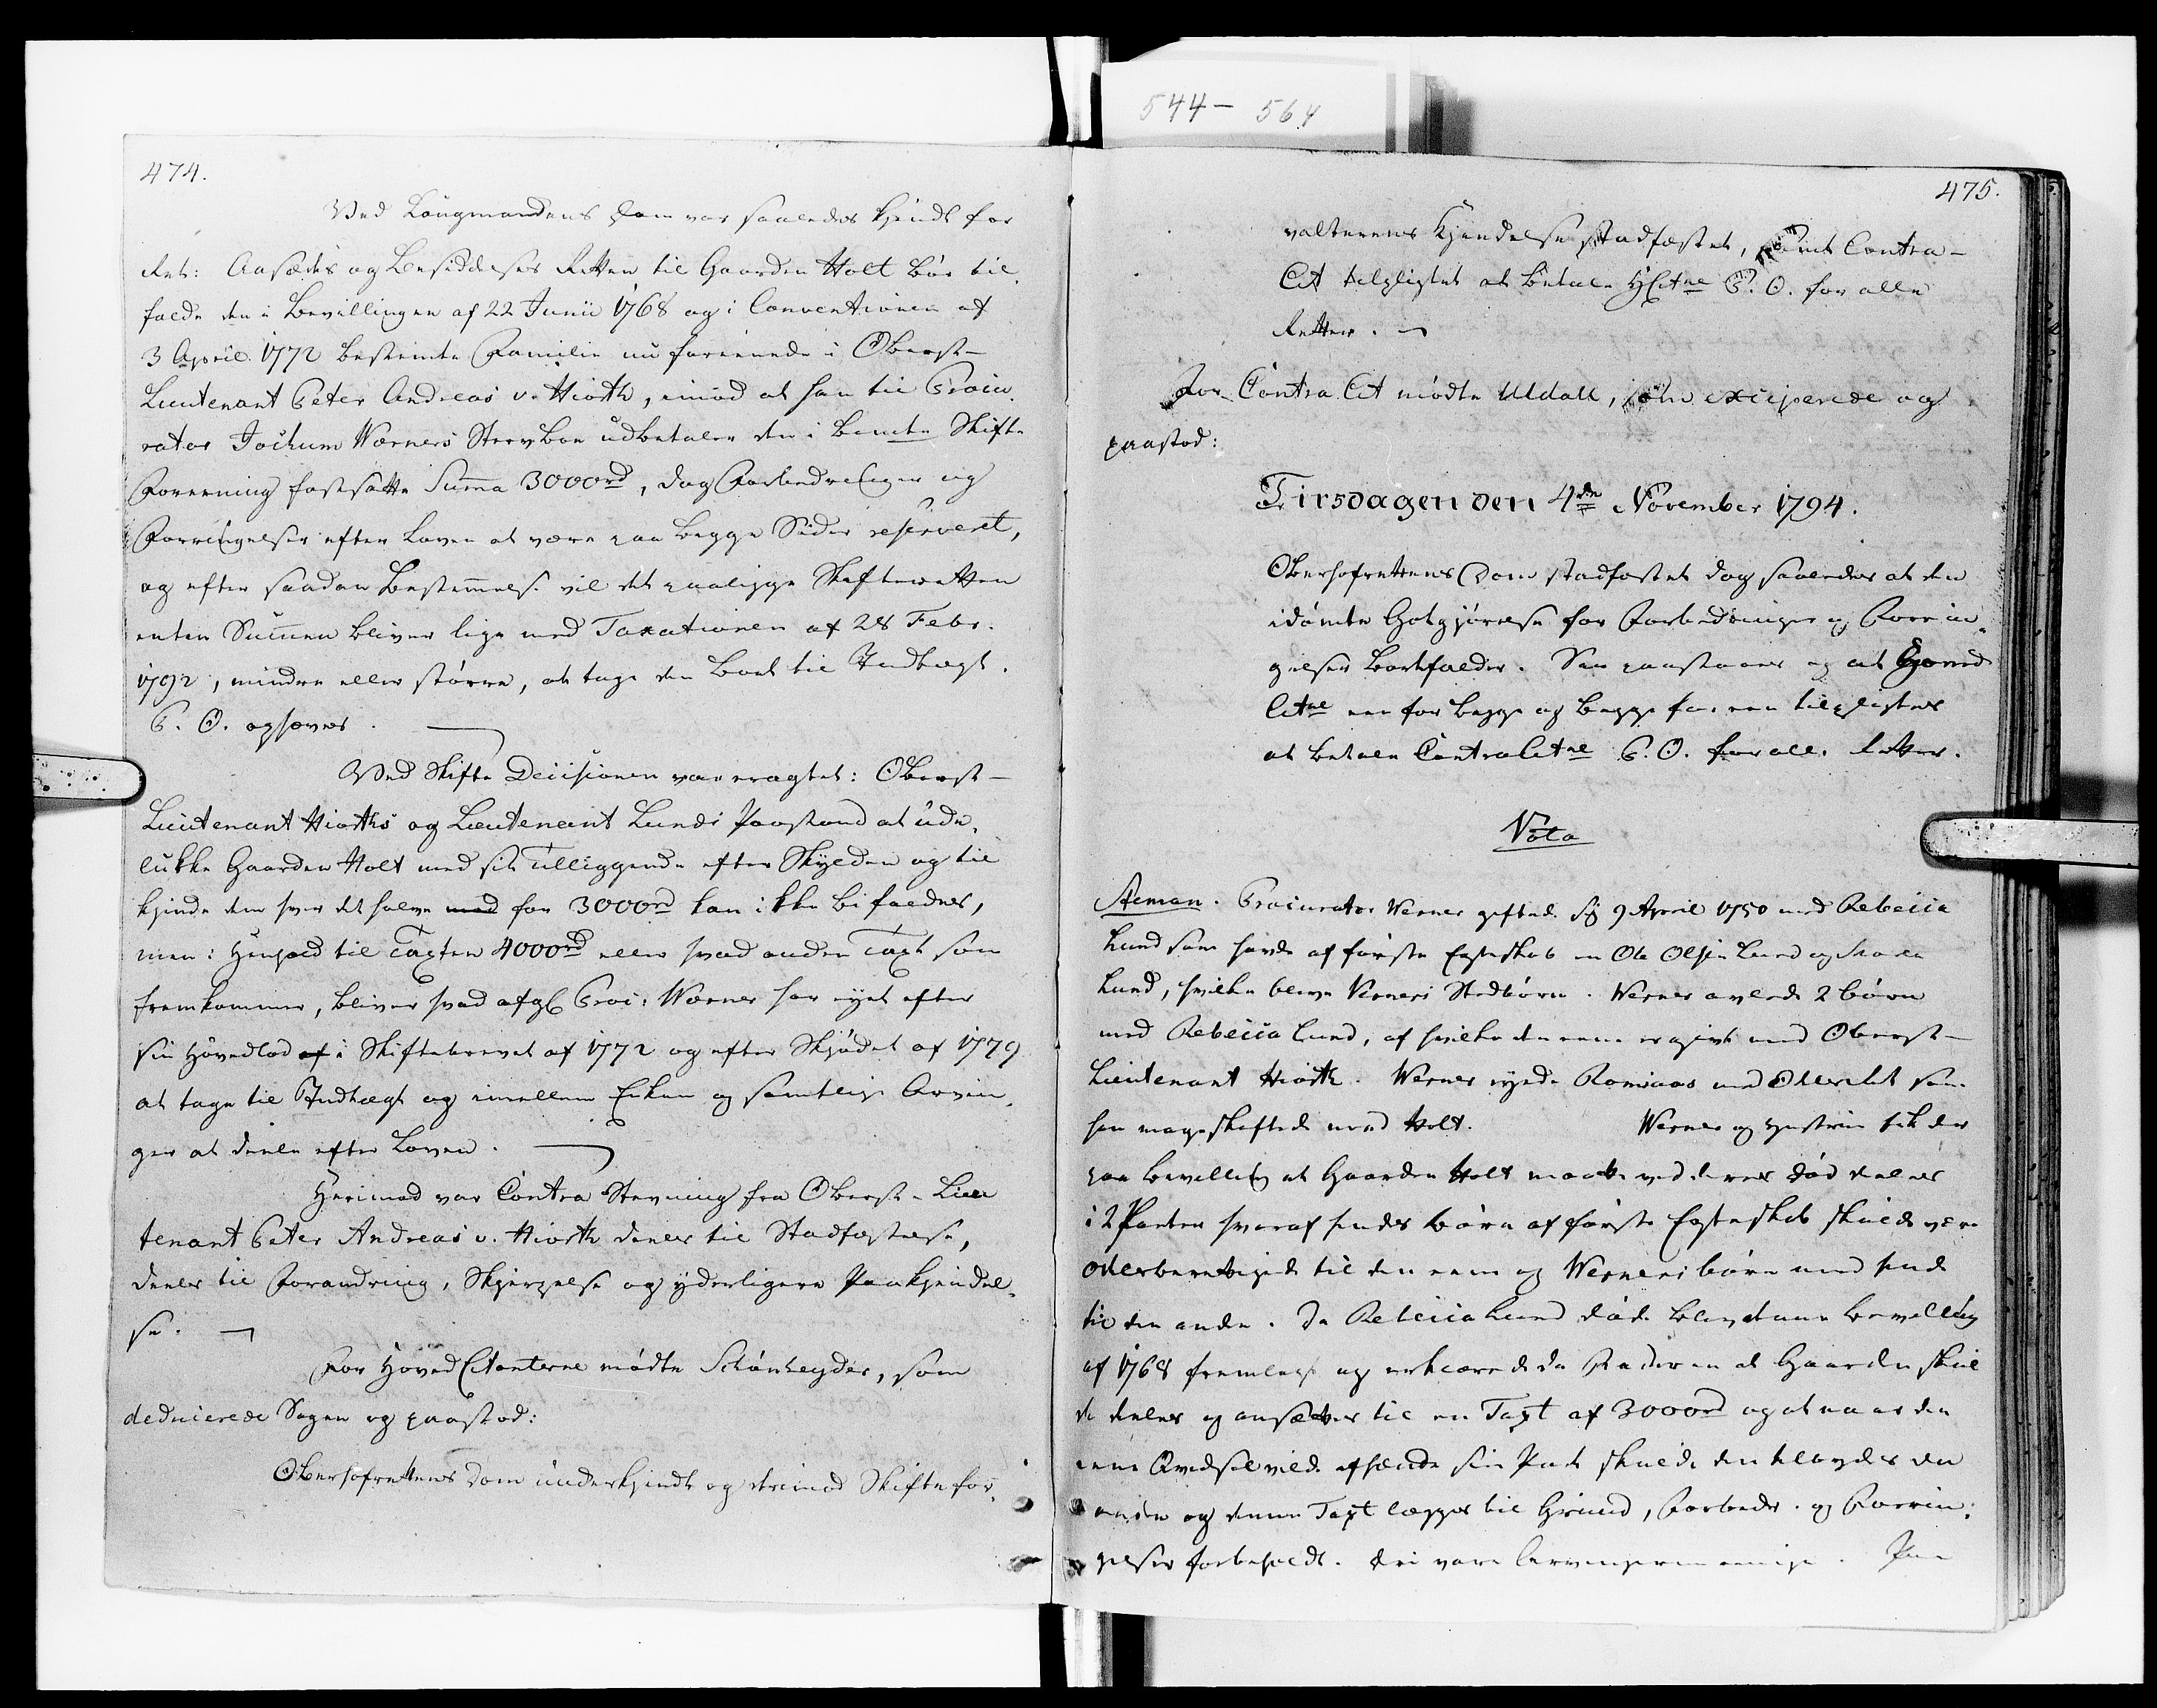 544 - 564
474.
Ved Laugmandens Dom var saaledes kjendt for
Ret: Aasædes og Besiddelses Retten til Gaarden Holt bør til-
falde den i Bevillingen af 22 Junii 1768 og i Conventionen af
3 April 1772 bestemte Familie nu foreenede i Oberst-
Lieutenant Peter Andreas v. Hiorth, imod at han til Procu-
rator Jochum Werners Stervboe udbetaler den i bemte Skifte
Forretning fastsatte Summa 3000rd, dog Forbedringer og
Forringelser efter Loven at være paa begge Sider reserveret,
og efter saadan Bestemmelse vil det paaligge Skifteretten
enten Summen bliver lige med Taxationen af 28 Febr.
1792, mindre eller større, at tage den Boet til Indtægt.
P. O. ophæves.
Ved Skifte Decisionen var eragtet: Oberst-
Lieutenant Hiorths og Lieutenant Lunds Paastand at ude-
lukke Gaarden Holt med sit Tilliggende efter Skylden og til
kjende dem hver det halve med for 3000rd kan ikke bifaldes,
men i Henhold til Taxten 4000rd eller hvad anden Taxt som
fremkommer, bliver hvad afg Proc: Werner har eyet efter
sin Hovedlod af i Skiftebrevet af 1772 og efter Skjødet af 1779
at tage til Indtægt og imellem Enken og samtlige Arvin-
ger at deele efter Loven.
Herimod var Contra Stevning fra Oberst-Lieu
tenant Peter Andreas v. Hiorth deels til Stadfæstelse,
deels til Forandring, Skjerpelse og yderligere Paakjendel-
se.
For HovedCitanterne mødte Schönheyder, som
deducerede Sagen og paastod:
Oberhofrettens Dom underkjendt og derimod Skiftefor-
475.
valterens Kjendelse stadfæstet, samt Contra-
Cit tilpligtet at betale HCitne P. O. for alle
Retter.
For Contra Cit mødte Uldall, som exciperede og
paastod:
Tirsdagen den 4de November 1794.
Oberhofrettens Dom stadfæstet dog saaledes at den
idømte Godtgjørelse for Forbedringer og Forrin-
gelser bortfalder. Han paastaaer og at Hoved
Citne een for begge og begge for een tilpligtes
at betale ContraCitne P. O. for alle Retter.
Vota
Aeman. Procurator Werner giftede sig 9 April 1750 med Rebecca
Lund som havde af første Egteskab en Ole Olsen Lund og
Lund, hvilke bleve Werners Stedbørn. Werner avlede 2 børn
med Rebecca Lund, af hvilke den eene er givt med Oberst-
Lieutenant Hiorth. Werner eyede Romsaas med Odelsret som
han mageskiftede mod Holt. Werner og Hustrue fik der
paa Bevilling at Gaarden Holt maatte ved deres Død deeles
i 2 Parter hvoraf hendes børn af første Egteskab skulde være
odelsberettigede til den eene og Werners børn med hende
til den anden. Da Rebecca Lund døde blev denne Bevilling
af 1768 fremlagt og erklærede da Faderen at Gaarden skul
de deeles og ansættes til en Taxt af 3000rd og at naar den
eene Qvidsel vilde afhænde sin Part skulde den tilbydes den
anden og denne Taxt lægges til Grund, Forbedr. og Forrin-
gelser forbeholdt. Heri vare Arvingerne eenige. Paa